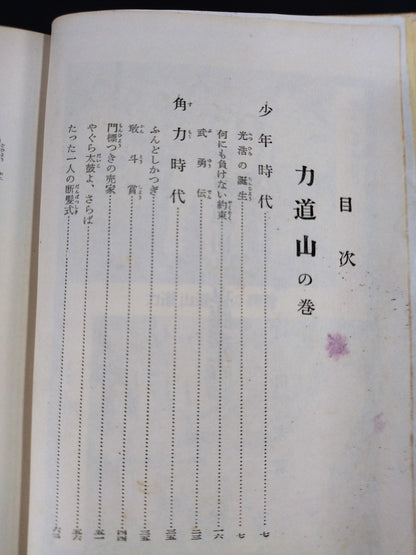 目次
力道山の巻
少年時代……七
光浩の誕生……七
何にも負けない約束……一六
武勇伝……二三
角力時代……三五
ふんどしかつぎ……三五
敢斗賞……四四
門標つきの売家……五一
やぐら太鼓よ、さらば……五六
たった一人の断髪式……六三